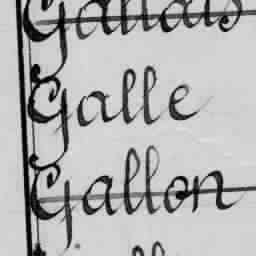 Gallais
Galle
Gallon